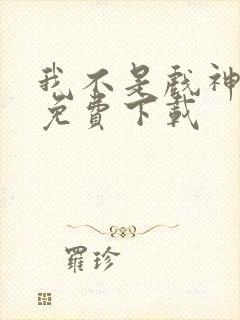 我不是戲神
免費下載
羅珍